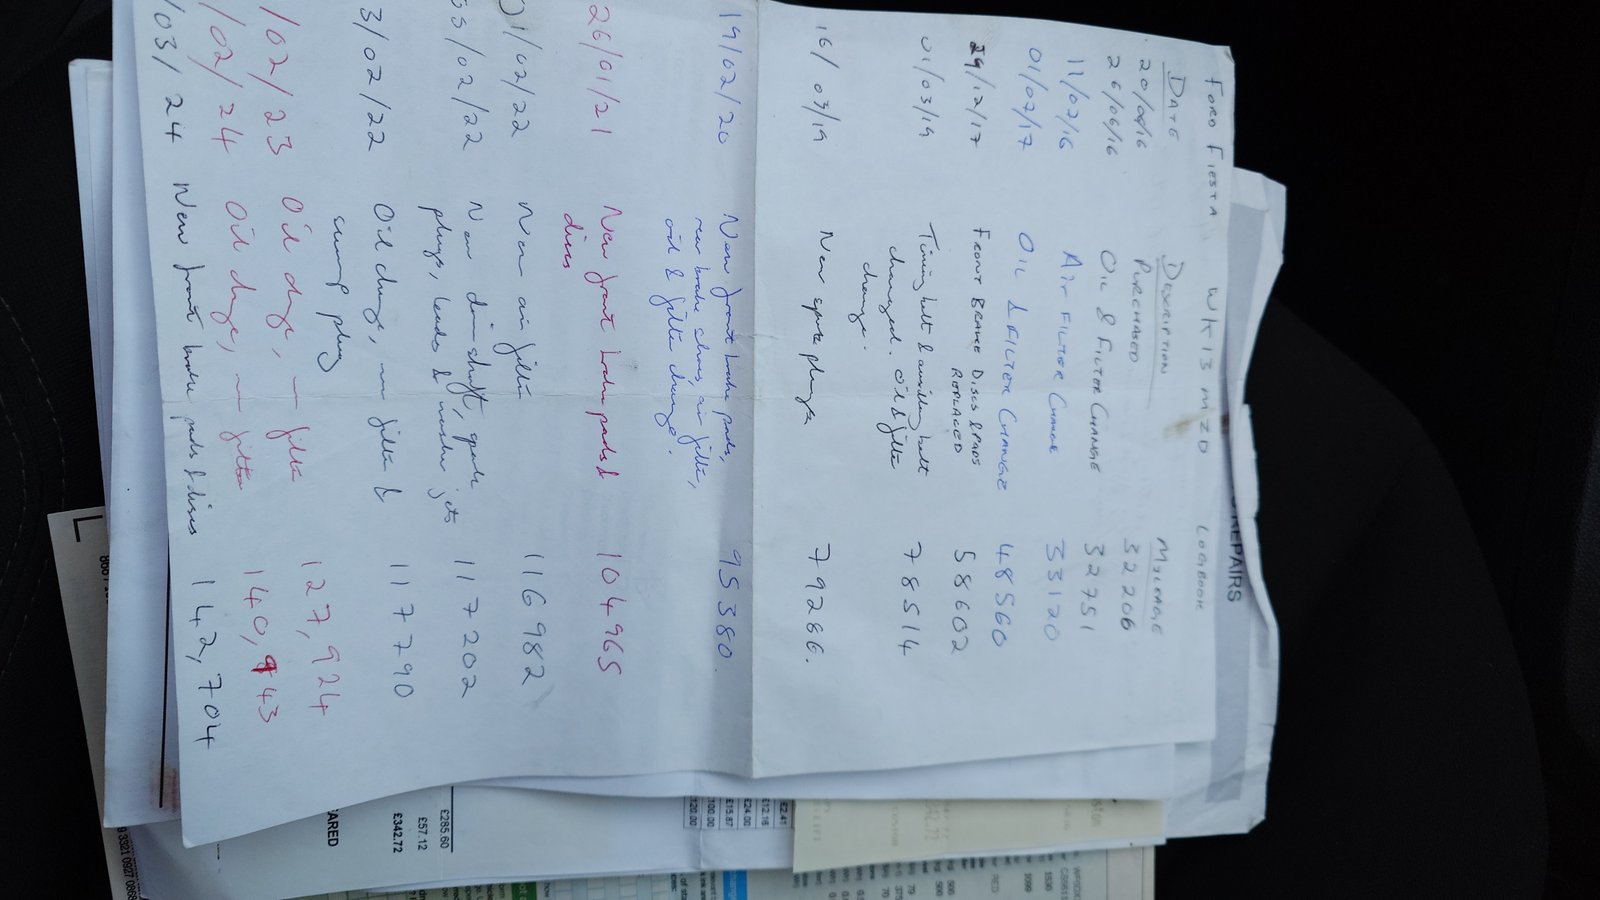 FORD FIESTA, WK13 MZD LOGBOOK
DATE DESCRIPTION MILEAGE
20/06/16 PURCHASED 32206
26/06/16 OIL & FILTER CHANGE 32751
11/07/16 AIR FILTER CHANGE 33120
01/07/17 OIL & FILTER CHANGE 48560
29/12/17 FRONT BRAKE DISCS & PADS 58602
REPLACED
01/03/19 Timing belt & auxillary belt 78514
changed. Oil & filter
change.
16/03/19 New spark plugs 79266.
19/02/20 New front brake pads, 95380.
new brake shoes, air filter,
oil & filter change.
26/01/21 New front brake pads & 104965
discs
01/02/22 New air filter 116982
05/02/22 New drive shaft, spark 117202
plugs, leads & washer jets
3/02/22 Oil change, new filter & 117790
sump plug
/02/23 Oil change, new filter 127,924
/02/24 Oil change, new filter 140,943
/03/24 New front brake pads & discs 142,704
REPAIRS
£2.41
£12.16
£24.00
£15.87
£100.00
£120.00
£285.60
£57.12
£342.72